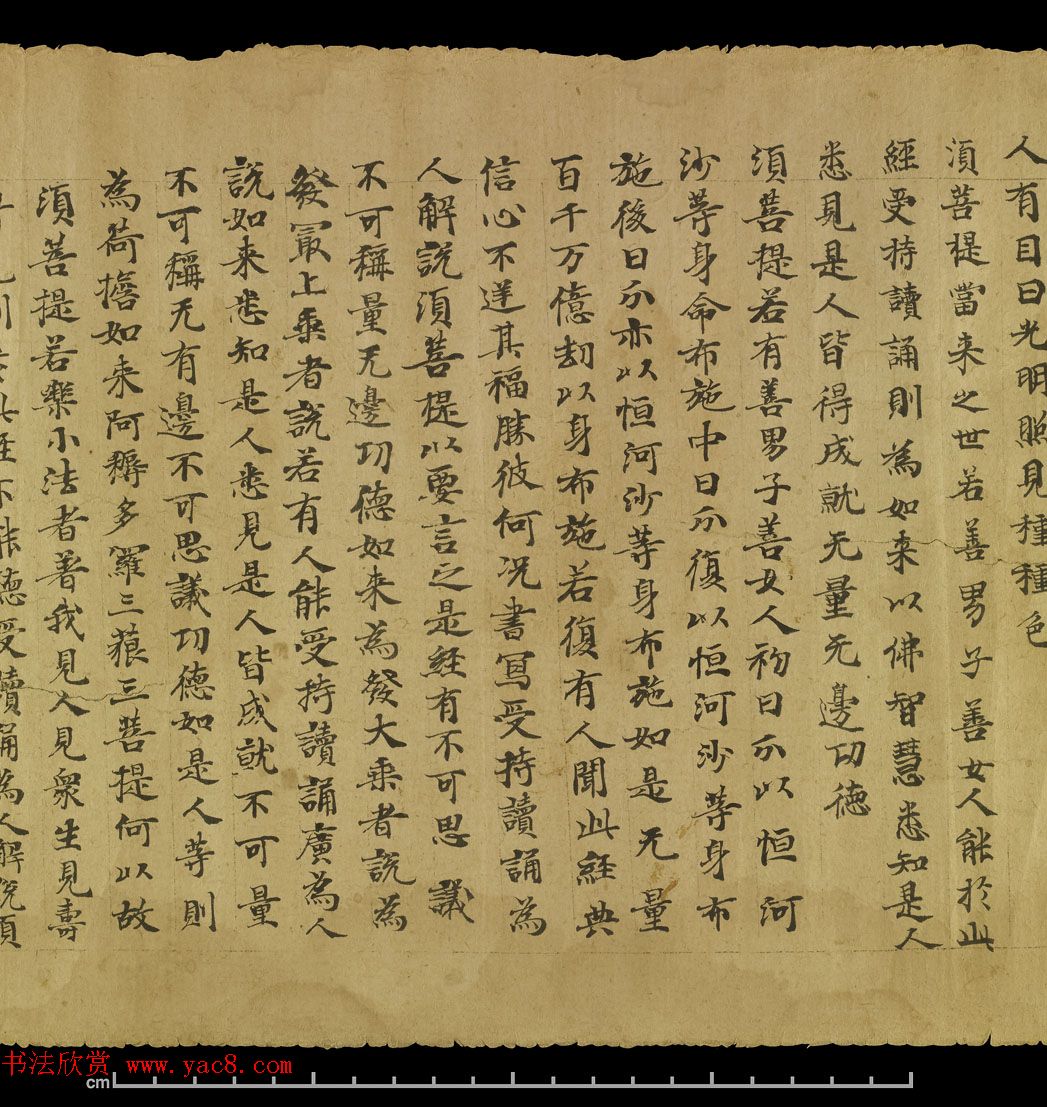 人有目日光明照見種種色
須菩提當来之世若善男子善女人能於此
經受持讀誦則為如来以佛智慧悉知是人
悉見是人皆得成就无量无邊功德
須菩提若有善男子善女人初日分以恒河
沙等身命布施中日分復以恒河沙等身布
施後日分亦以恒河沙等身布施如是无量
百千万億劫以身布施若復有人聞此經典
信心不逆其福勝彼何况書寫受持讀誦為
人解説須菩提以要言之是經有不可思議
不可稱量无邊功德如来為發大乘者説為
發冣上乘者説若有人能受持讀誦廣為人
説如来悉知是人悉見是人皆成就不可量
不可稱无有邊不可思議功德如是人等則
為荷擔如来阿耨多羅三藐三菩提何以故
須菩提若樂小法者著我見人見衆生見壽
則於此經不能聽受讀誦為人解説須
书法欣赏 www.yac8.com
cm